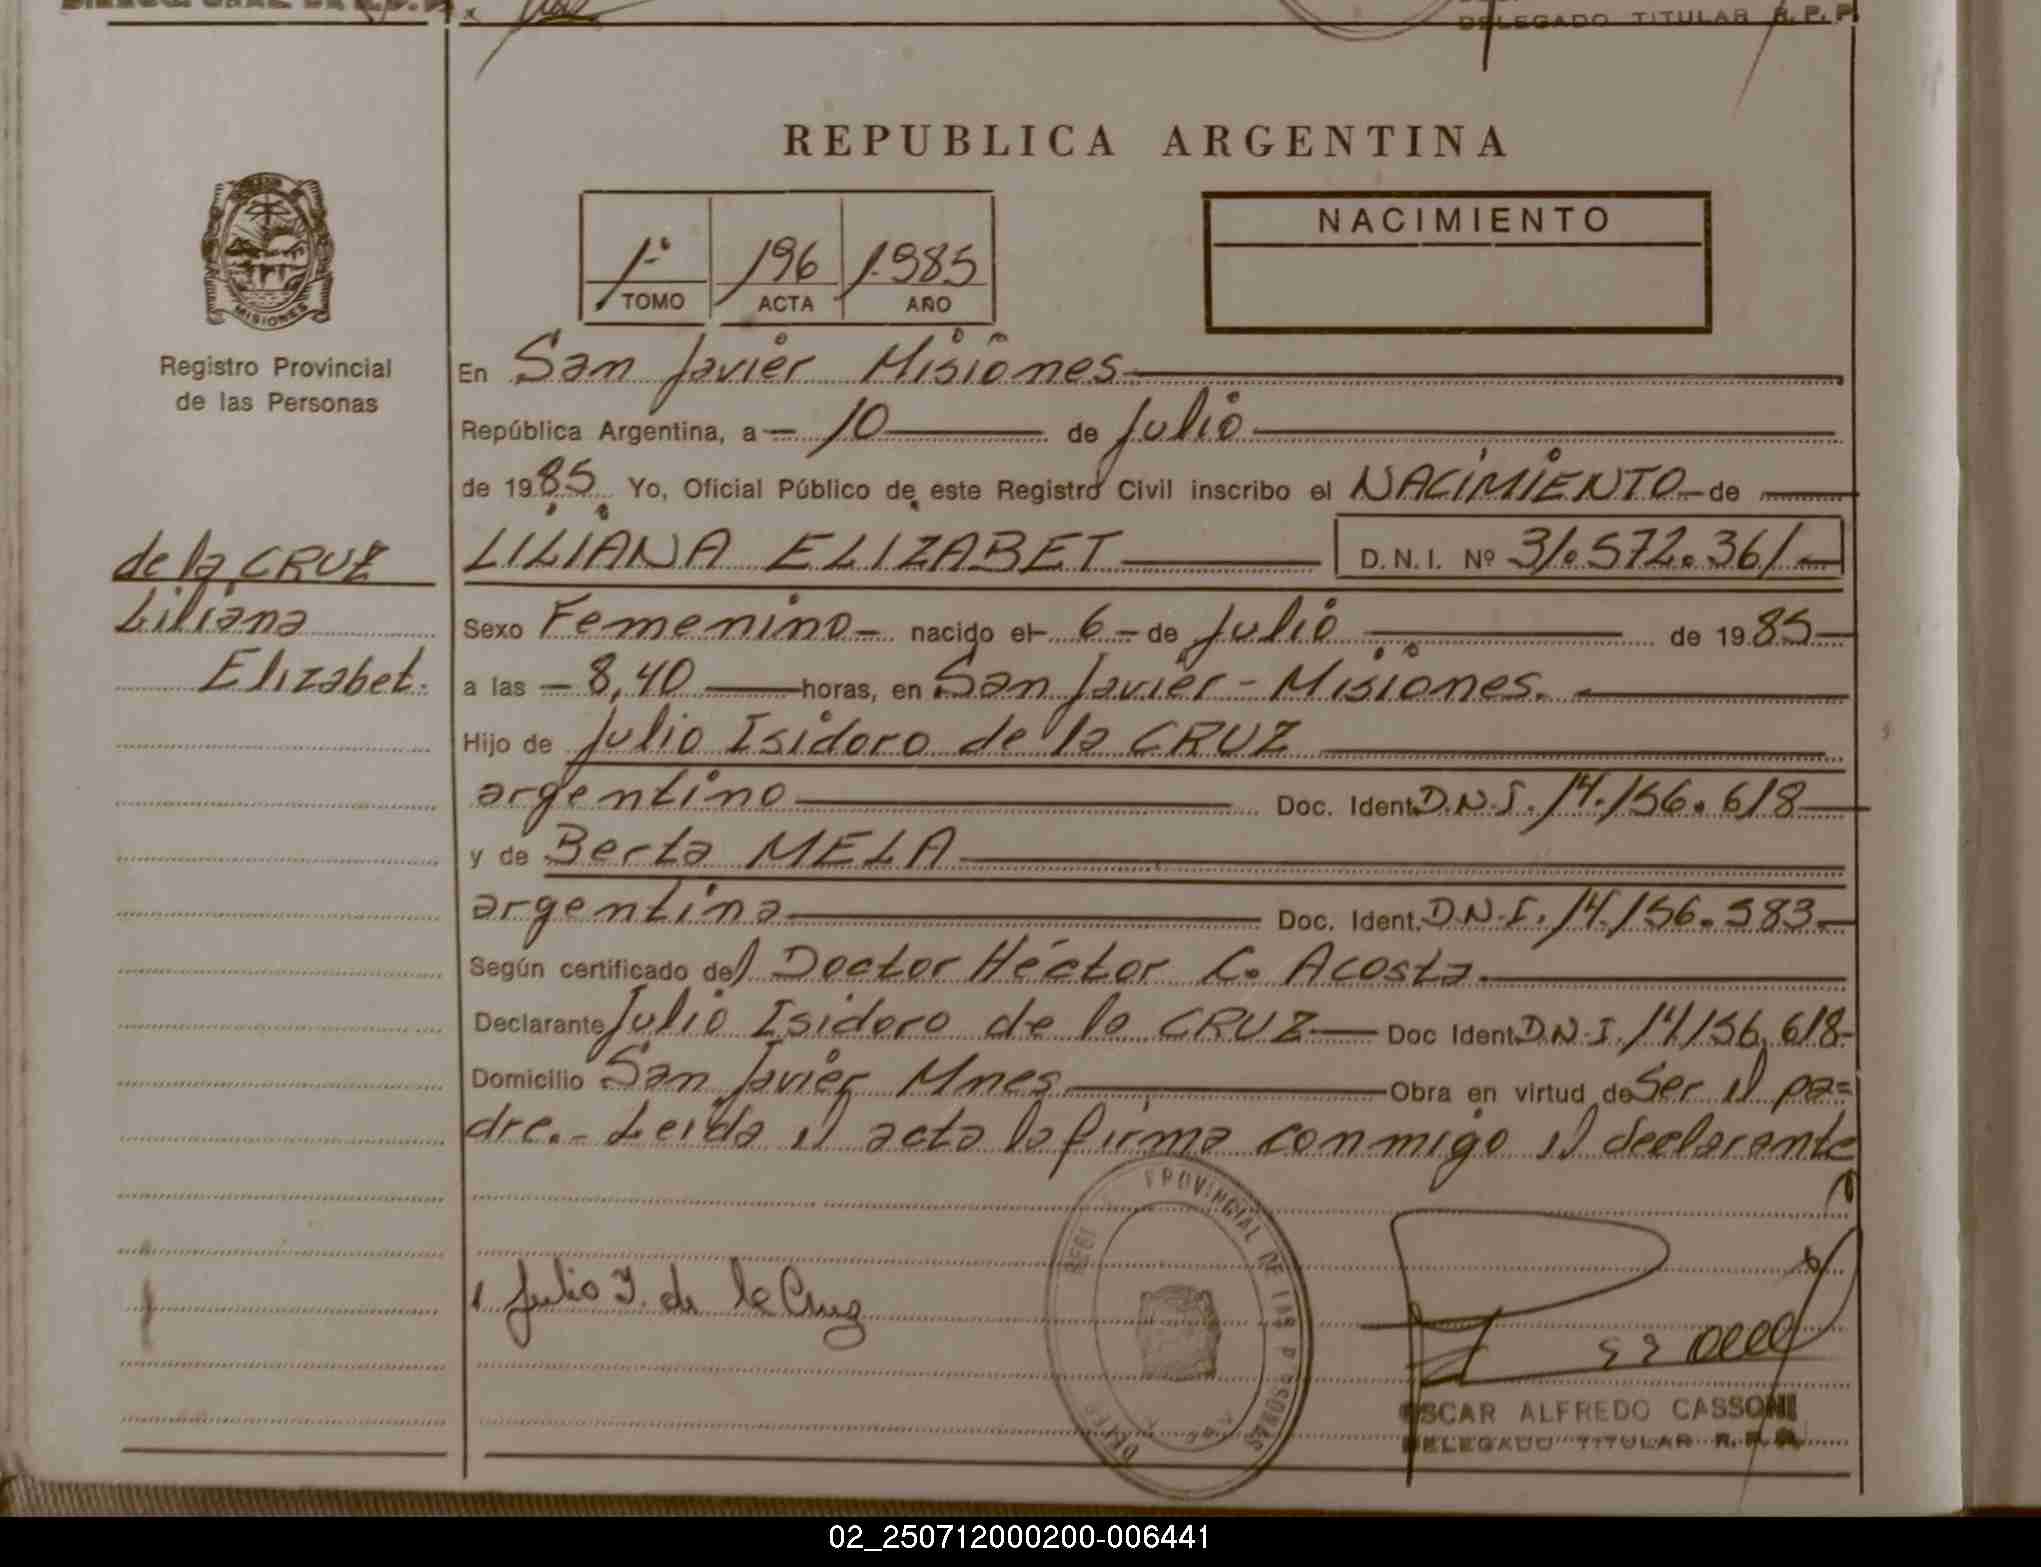 DELEGADO TITULAR R. P. P.
REPUBLICA ARGENTINA
NACIMIENTO
1º 196 1.985
TOMO ACTA AÑO
MISIONES
Registro Provincial
de las Personas
En San Javier Misiones
República Argentina, a 10 de Julio
de 1985 Yo, Oficial Público de este Registro Civil inscribo el NACIMIENTO de
de la CRUZ
Liliana
Elizabet.
LILIANA ELIZABET D.N.I. Nº 31.572.361
Sexo Femenino nacido el 6 de Julio de 1985
a las 8,40 horas, en San Javier - Misiones.
Hijo de Julio Isidoro de la CRUZ
argentino Doc. Ident. D.N.I. 14.156.618
y de Berta MELA
argentina Doc. Ident. D.N.I. 14.156.583
Según certificado del Doctor Héctor C. Acosta.
Declarante Julio Isidoro de la CRUZ Doc Ident. D.N.I. 14.156.618-
Domicilio San Javier Mnes Obra en virtud de Ser el pa=
dre.- Leída el acta la firma conmigo el declarante
PROVINCIAL DE LAS PERSONAS
Julio I. de la Cruz
OSCAR ALFREDO CASSONI
DELEGADO TITULAR R. P. P.
02_250712000200-006441